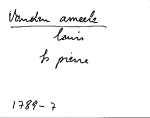 Vanden ameele
louis
h pierre
1789-7